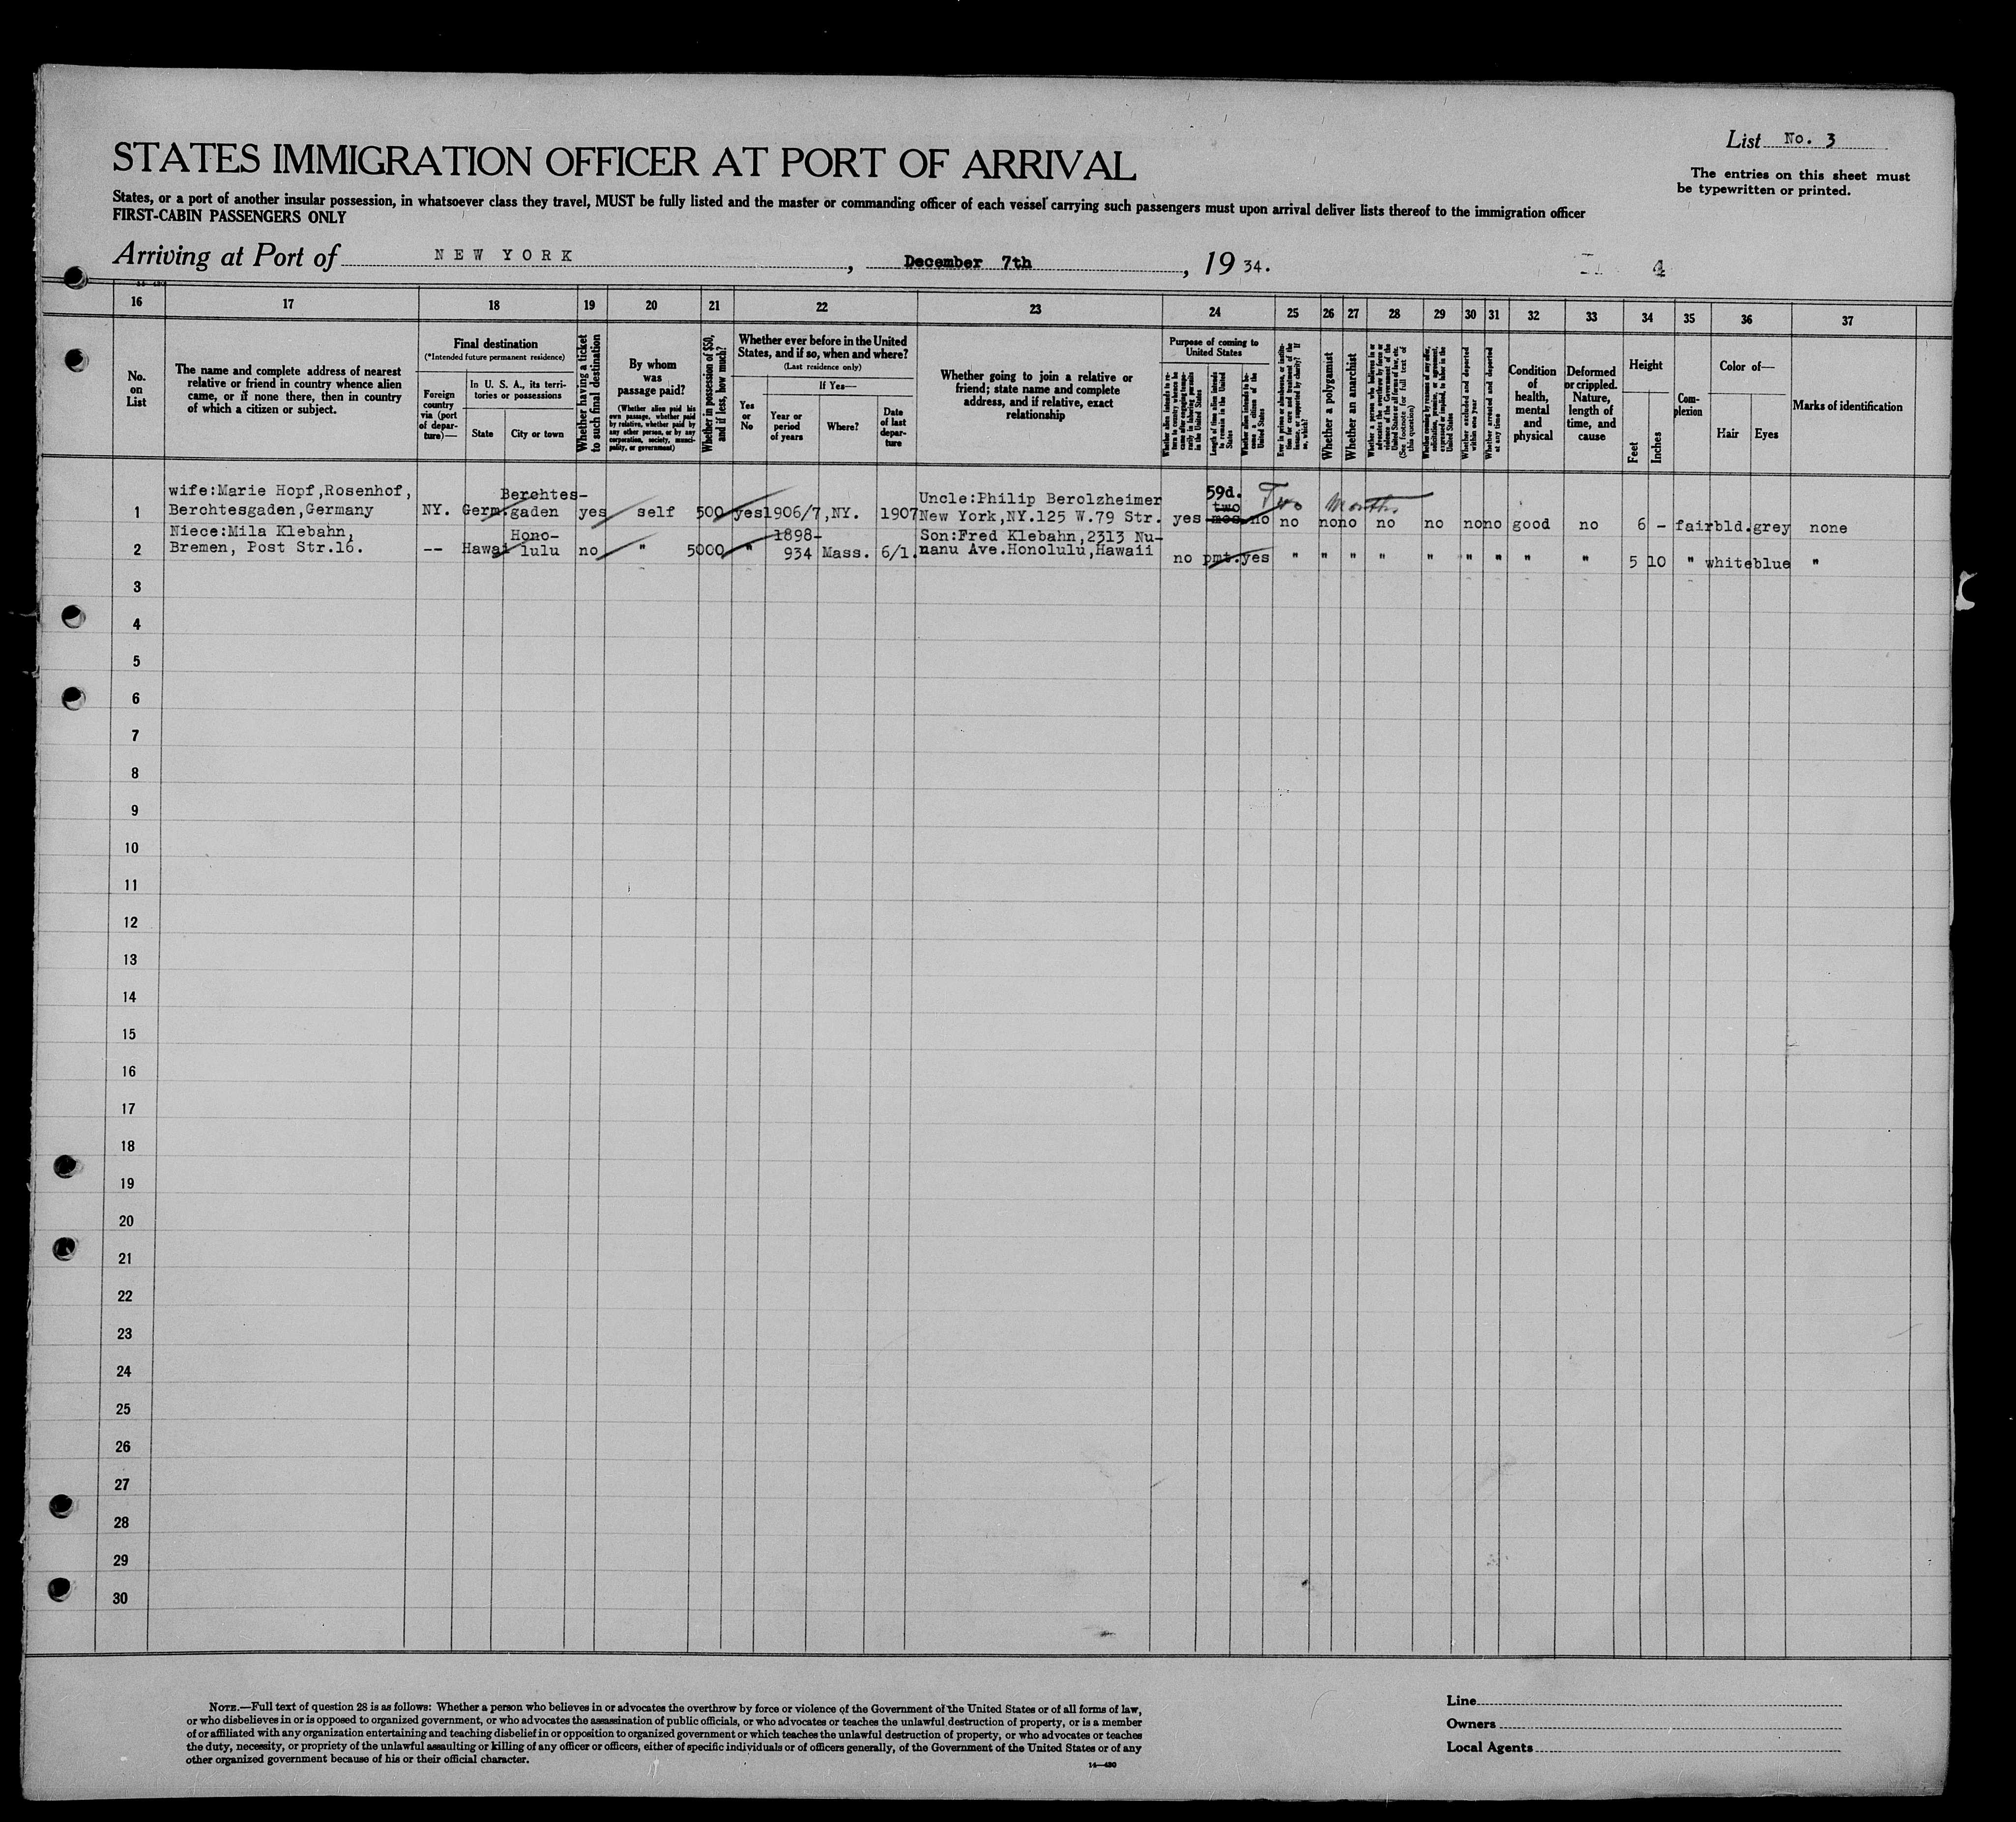 List No. 3
STATES IMMIGRATION OFFICER AT PORT OF ARRIVAL
The entries on this sheet must
be typewritten or printed.
States, or a port of another insular possession, in whatsoever class they travel, MUST be fully listed and the master or commanding officer of each vessel carrying such passengers must upon arrival deliver lists thereof to the immigration officer
FIRST-CABIN PASSENGERS ONLY
Arriving at Port of NEW YORK, December 7th, 19 34.
4
16 17 18 19 20 21 22 23 24 25 26 27 28 29 30 31 32 33 34 35 36 37
No.
on
List
The name and complete address of nearest
relative or friend in country whence alien
came, or if none there, then in country
of which a citizen or subject.
Final destination
(*Intended future permanent residence)
Foreign
country
via (port
of depar-
ture)—
In U. S. A., its terri-
tories or possessions
State
City or town
Whether having a ticket
to such final destination
By whom
was
passage paid?
(Whether alien paid his
own passage, whether paid
by relative, whether paid by
any other person, or by any
corporation, society, munici-
pality, or government)
Whether in possession of $50,
and if less, how much?
Whether ever before in the United
States, and if so, when and where?
(Last residence only)
Yes
or
No
If Yes—
Year or
period
of years
Where?
Date
of last
depar-
ture
Whether going to join a relative or
friend; state name and complete
address, and if relative, exact
relationship
Purpose of coming to
United States
Whether alien intends to re-
turn to country whence he
came after engaging tempo-
rarily in laboring pursuits
in the United States
Length of time alien intends
to remain in the United
States
Whether alien intends to be-
come a citizen of the
United States
Ever in prison or almshouse, or institu-
tion for care and treatment of the
insane, or supported by charity? If
so, which?
Whether a polygamist
Whether an anarchist
Whether a person who believes in or
advocates the overthrow by force or
violence of the Government of the
United States or all forms of law, etc.
(See footnote for full text of
this question)
Whether coming by reason of any offer,
solicitation, promise, or agreement,
expressed or implied, to labor in the
United States
Whether excluded and deported
within one year
Whether arrested and deported
at any time
Condition
of
health,
mental
and
physical
Deformed
or crippled.
Nature,
length of
time, and
cause
Height
Feet
Inches
Com-
plexion
Color of—
Hair
Eyes
Marks of identification
wife:Marie Hopf,Rosenhof, Berchtes- Uncle:Philip Berolzheimer 59d. Two Months
1 Berchtesgaden,Germany NY. Germ. gaden yes self 500 yes 1906/7,NY. 1907 New York,NY.125 W.79 Str. yes two mos. no no no no no no no no good no 6 - fair bld. grey none
Niece:Mila Klebahn, Hono- 1898- Son:Fred Klebahn,2313 Nu-
2 Bremen, Post Str.16. -- Hawai lulu no " 5000 " 934 Mass. 6/1. nanu Ave.Honolulu,Hawaii no pmt. yes " " " " " " " " " 5 10 " white blue "
3
4
5
6
7
8
9
10
11
12
13
14
15
16
17
18
19
20
21
22
23
24
25
26
27
28
29
30
NOTE.—Full text of question 28 is as follows: Whether a person who believes in or advocates the overthrow by force or violence of the Government of the United States or of all forms of law,
or who disbelieves in or is opposed to organized government, or who advocates the assassination of public officials, or who advocates or teaches the unlawful destruction of property, or is a member
of or affiliated with any organization entertaining and teaching disbelief in or opposition to organized government or which teaches the unlawful destruction of property, or who advocates or teaches
the duty, necessity, or propriety of the unlawful assaulting or killing of any officer or officers, either of specific individuals or of officers generally, of the Government of the United States or of any
other organized government because of his or their official character.
14—430
Line
Owners
Local Agents